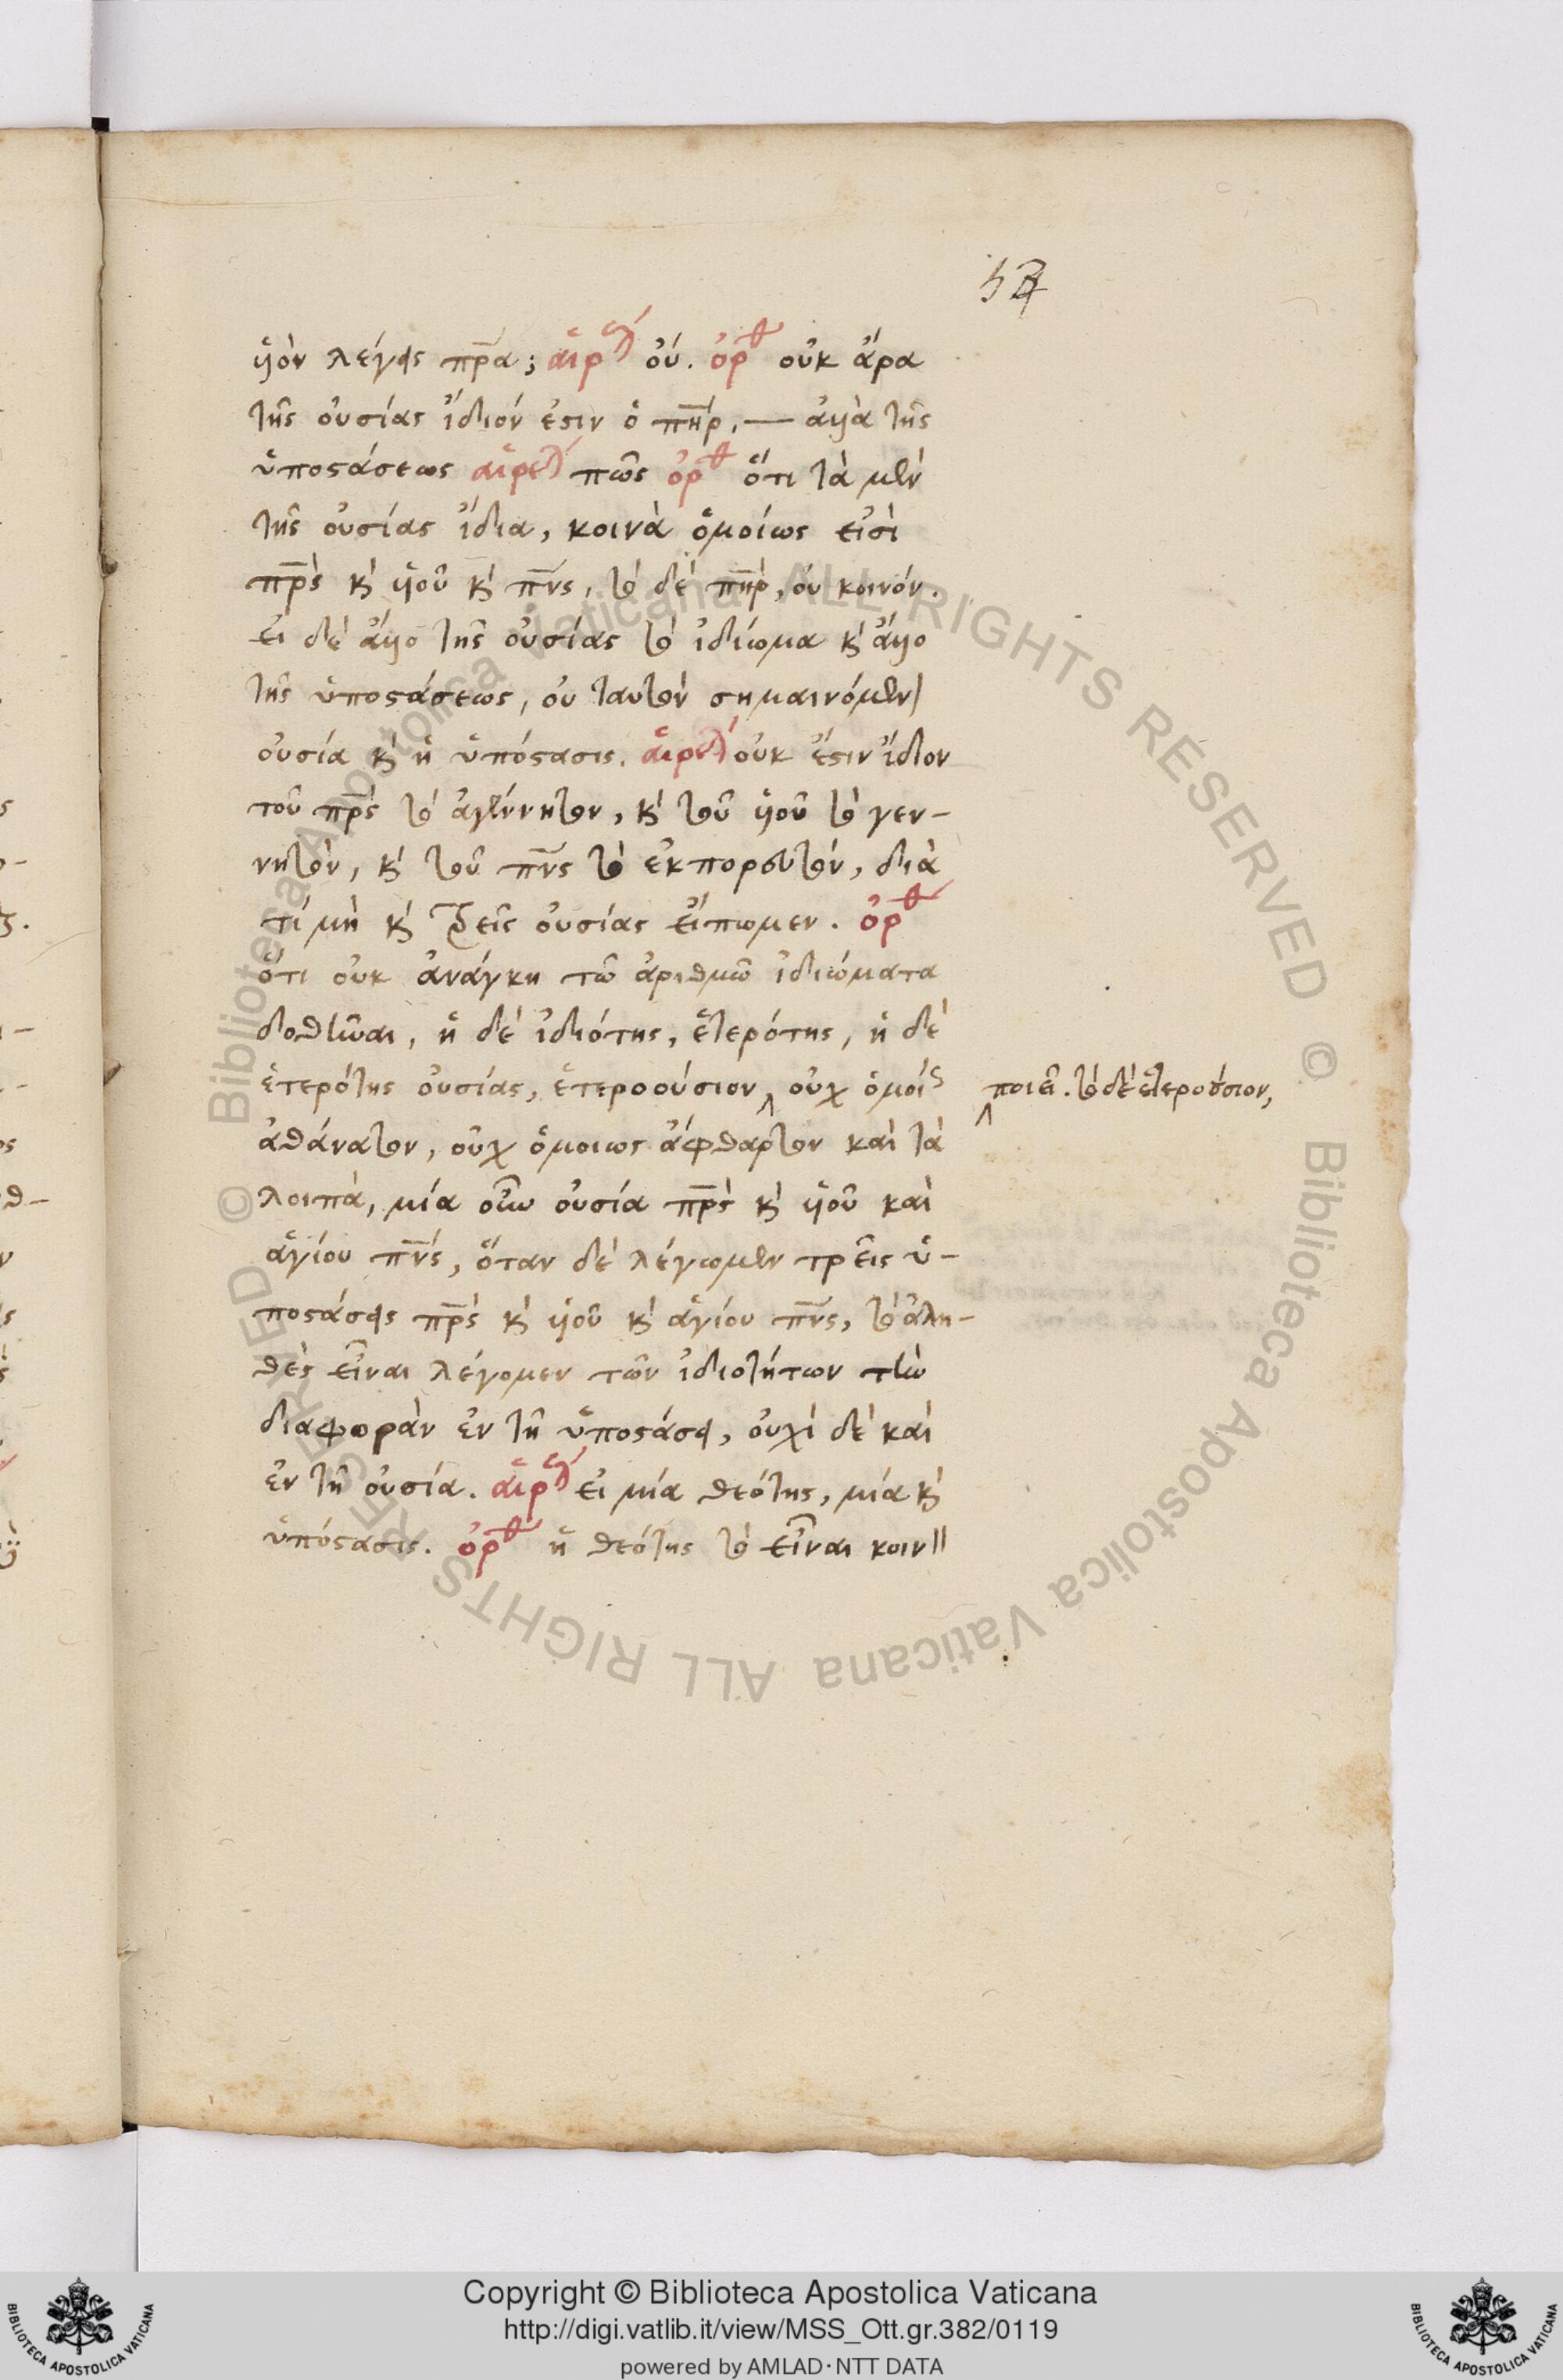 57
ὑὸν λέγεις πρ̅α; αἱρετ οὔ. ὀρθ οὐκ ἄρα
τῆς οὐσίας ἴδιόν ἐστιν ὁ πη̅ρ, — ἀλλὰ τῆς
ὑποστάσεως αἱρετ πῶς ὀρθ ὅτι τὰ μὲν
τῆς οὐσίας ἴδια, κοινὰ ὁμοίως εἰσὶ
πρ̅ς κ̀ ὑοῦ κ̀ πν̅ς, τὸ δὲ πη̅ρ, οὐ κοινόν.
εἰ δὲ ἄλλο τῆς οὐσίας τὸ ἰδίωμα κ̀ ἄλλο
τῆς ὑποστάσεως, οὐ ταυτὸν σημαινόμεν
οὐσία κ̀ ἡ ὑπόστασις. αἱρετ οὐκ ἔστιν ἴδιον
τοῦ πρ̅ς τὸ ἀγέννητον, κ̀ τοῦ ὑοῦ τὸ γεν-
νητὸν, κ̀ τοῦ πν̅ς τὸ ἐκπορευτόν, διὰ
τί μὴ κ̀ τρεῖς οὐσίας εἴπωμεν. ὀρθ
ὅτι οὐκ ἀνάγκη τῶ ἀριθμῶ ἰδιώματα
δοθῆναι, ἡ δὲ ἰδιότης, ἑτερότης, ἡ δὲ
ἑτερότης οὐσίας, ἑτεροούσιον ‸ οὐχ ὁμοίς
‸ ποιεῖ. τὸ δὲ ἑτεροούσιον,
ἀθάνατον, οὐχ ὁμοιως ἄφθαρτον καὶ τὰ
λοιπὰ, μία οὖν οὐσία πρ̅ς κ̀ ὑοῦ καὶ
ἁγίου πν̅ς, ὅταν δὲ λέγωμεν τρεῖς ὑ-
ποστάσεις πρ̅ς κ̀ ὑοῦ κ̀ ἁγίου πν̅ς, τὸ ἀλη-
θὲς εἶναι λέγομεν τῶν ἰδιοτήτων τὴν
διαφορὰν ἐν τῆ ὑποστάσει, οὐχὶ δὲ καὶ
ἐν τῆ οὐσία. αἱρετ εἰ μία θεότης, μία κ̀
ὑπόστασις. ὀρθ ἡ θεότης τὸ εἶναι κοιν
© Biblioteca Apostolica Vaticana ALL RIGHTS RESERVED © Biblioteca Apostolica Vaticana ALL RIGHTS RESERVED
Copyright © Biblioteca Apostolica Vaticana
http://digi.vatlib.it/view/MSS_Ott.gr.382/0119
powered by AMLAD·NTT DATA
BIBLIOTECA APOSTOLICA VATICANA
BIBLIOTECA APOSTOLICA VATICANA